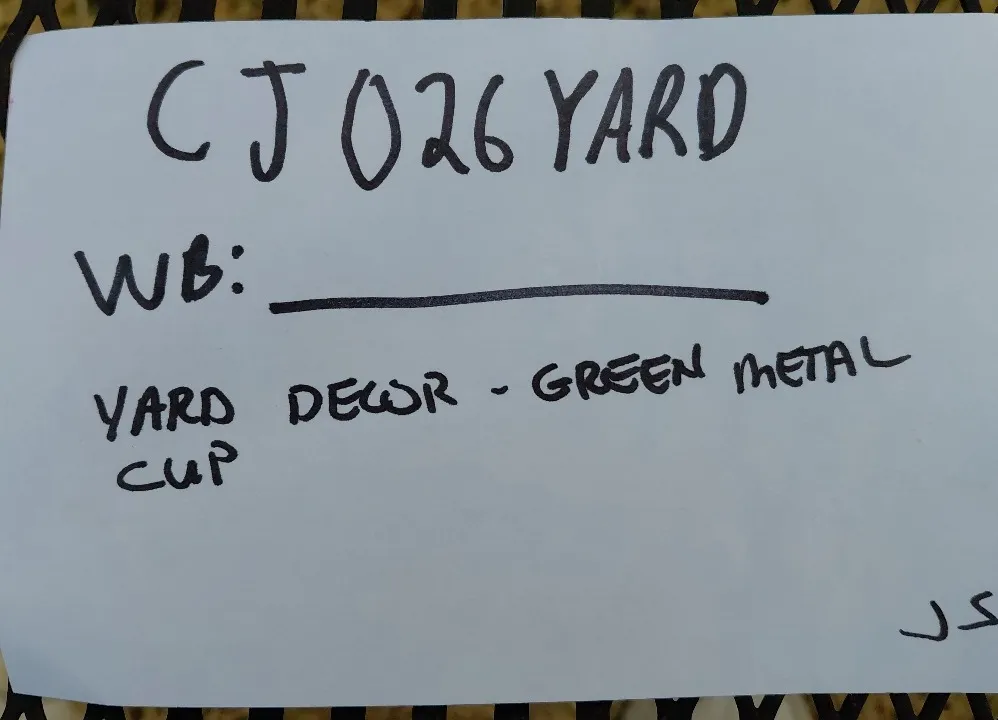 CJ026YARD
WB: ___________
YARD DECOR - GREEN METAL
CUP
JS